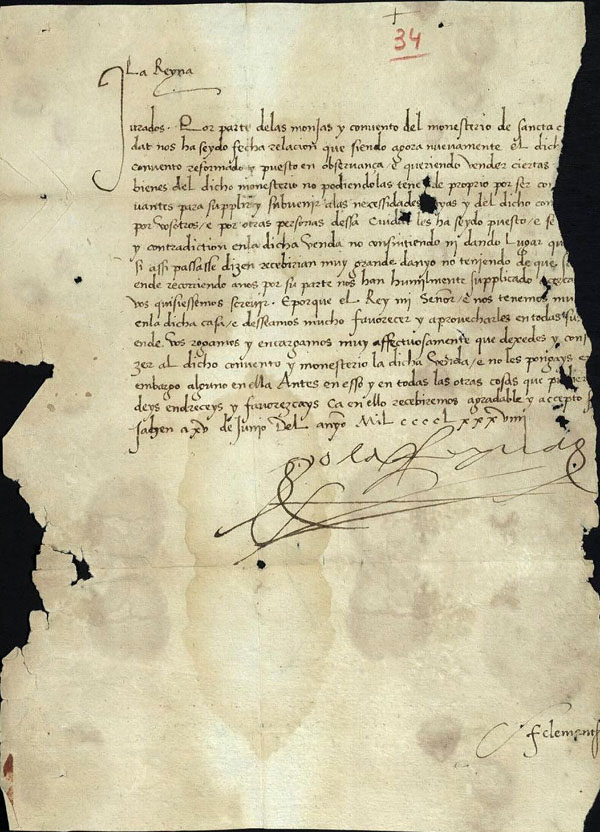 34
La Reyna
Jurados. Por parte delas monjas y convento del monesterio de sancta
dat nos ha seydo fecha relacion que siendo agora nuevamente el dich
convento reformado y puesto en observança e queriendo vender ciertas
bienes del dicho monesterio no podiendolas tener de proprio por ser
uantes para supplir y subvenir alas necessidades suyas y del dicho con
por vosotros e por otras personas dessa Ciudat les ha seydo puesto e se
y contradiction enla dicha venda no consintiendo ni dando lugar que
si assi passasse dizen recebirian muy grande danyo no teniendo de que
ende recorriendo anos por su parte nos han humilmente supplicado
vos quisiessemos screvir. Eporque el Rey mi Señor e nos tenemos mu
enla dicha casa e desseamos mucho favorecer y aprovecharles en todas su
ende vos rogamos y encargamos muy affectuosamente que dexedes y cons
zer al dicho convento y monesterio la dicha venda e no les pongays
embargo alguno en ella Antes en esso y en todas las otras cosas que
deys endreceys y favorezcays Ca en ello recebiremos agradable y accepto
Jahen a xv de Junio Del anyo Mil cccclxxxviiii
yo la Reyna